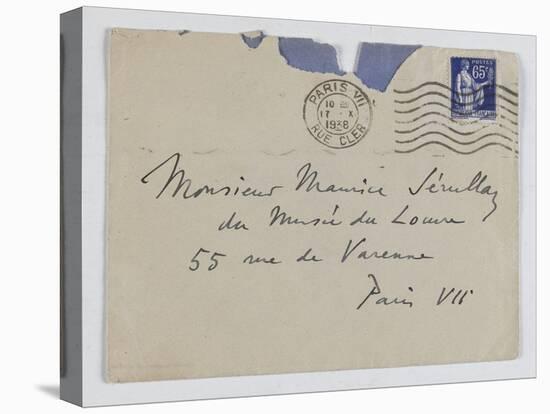 PARIS VII
10
17 - X
1938
RUE CLER
POSTES
65
Monsieur Maurice Sérullaz
du Musée du Louvre
55 rue de Varenne
Paris VII